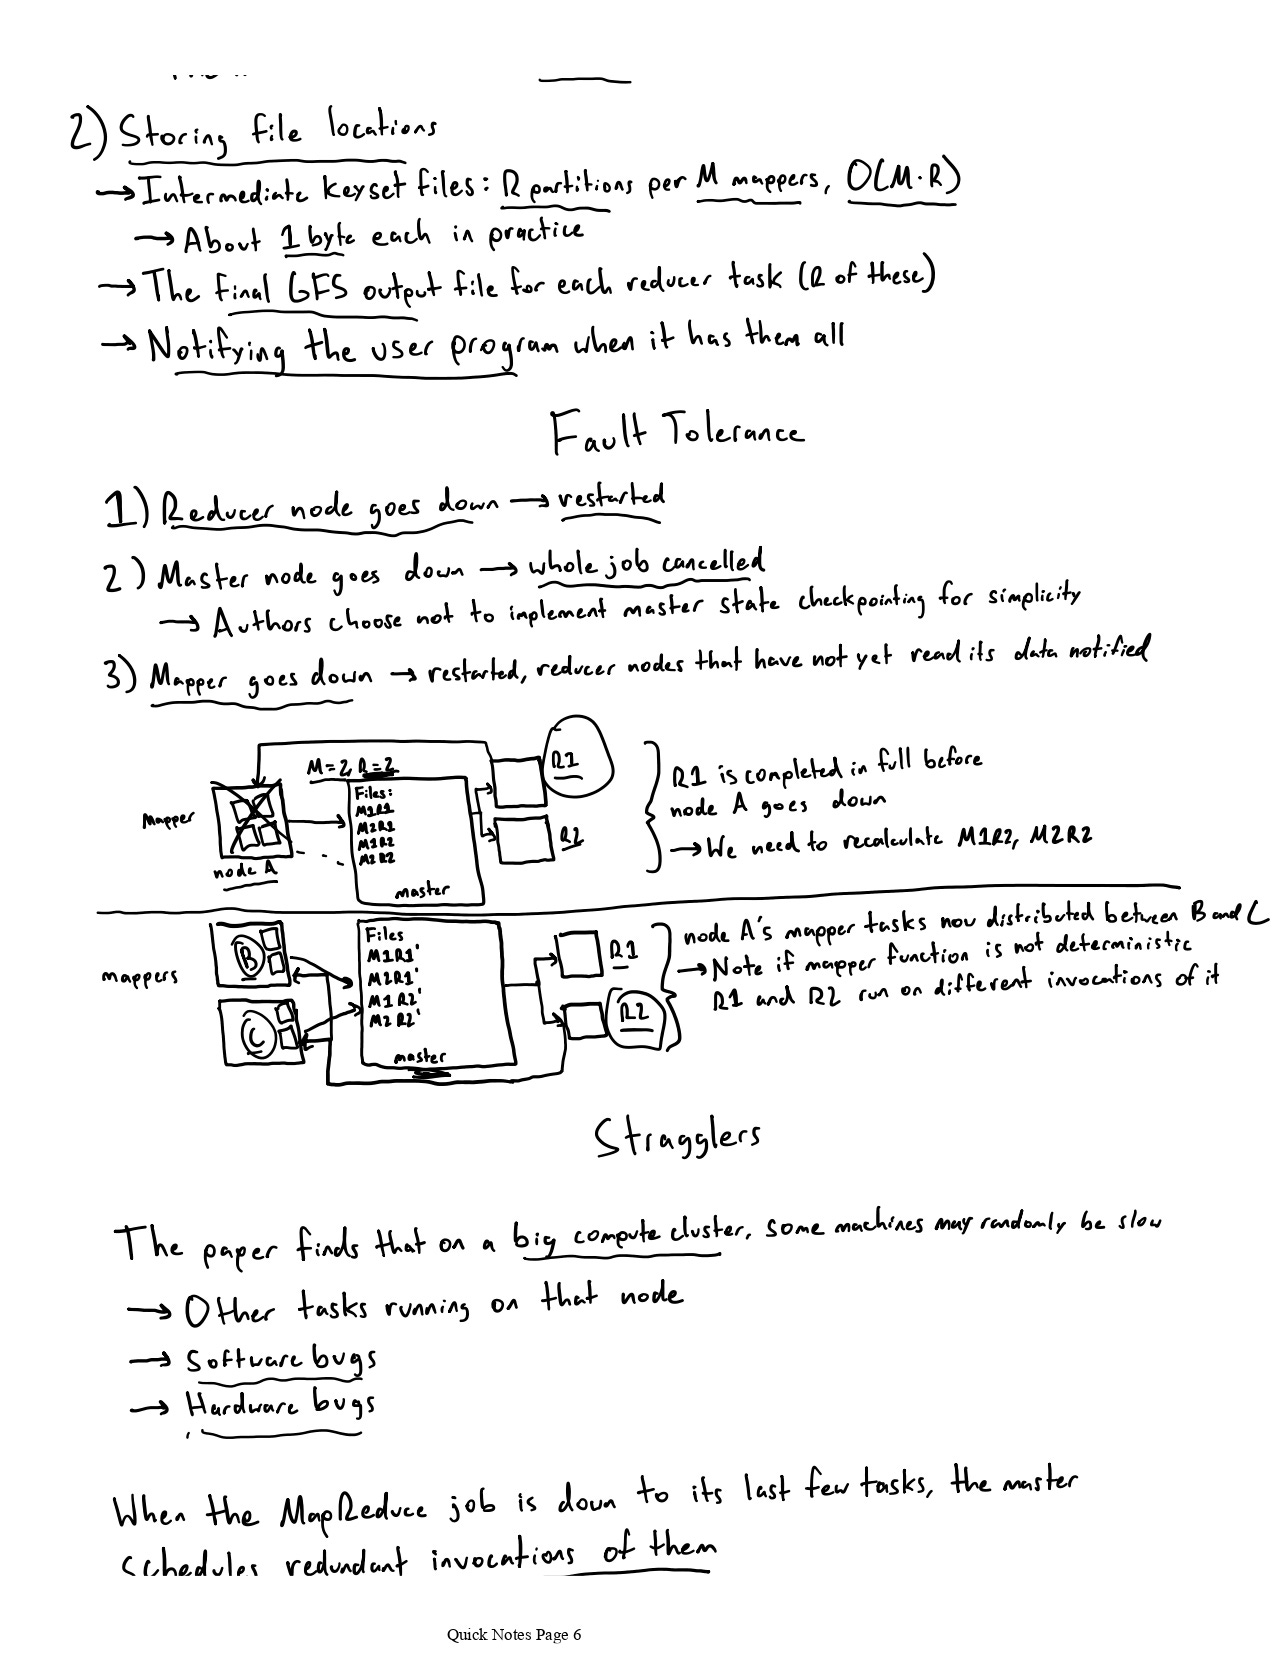 2) Storing file locations
→ Intermediate keyset files: R partitions per M mappers, O(M·R)
→ About 1 byte each in practice
→ The final GFS output file for each reducer task (R of these)
→ Notifying the user program when it has them all
Fault Tolerance
1) Reducer node goes down → restarted
2) Master node goes down → whole job cancelled
→ Authors choose not to implement master state checkpointing for simplicity
3) Mapper goes down → restarted, reducer nodes that have not yet read its data notified
Mapper
node A
M=2, R=2
Files:
M1R1
M2R1
M1R2
M2R2
master
R1
R2
R1 is completed in full before
node A goes down
→ We need to recalculate M1R2, M2R2
mappers
B
C
Files
M1R1'
M2R1'
M1R2'
M2R2'
master
R1
R2
node A's mapper tasks now distributed between B and C
→ Note if mapper function is not deterministic
R1 and R2 run on different invocations of it
Stragglers
The paper finds that on a big compute cluster, some machines may randomly be slow
→ Other tasks running on that node
→ Software bugs
→ Hardware bugs
When the MapReduce job is down to its last few tasks, the master
schedules redundant invocations of them
Quick Notes Page 6